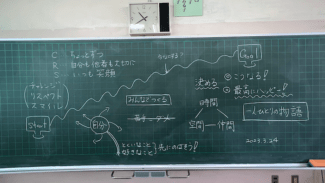 C - ちょっとずつ
R - 自分も他者も大切に
S - いつも笑顔
チャレンジ
リスペクト
スマイル
Start
Goal
決める
① こうなる!
② 最高にハッピー!
時間
空間
仲間
みんなでつくる
自分
一人ひとりの物語
2023.3.24